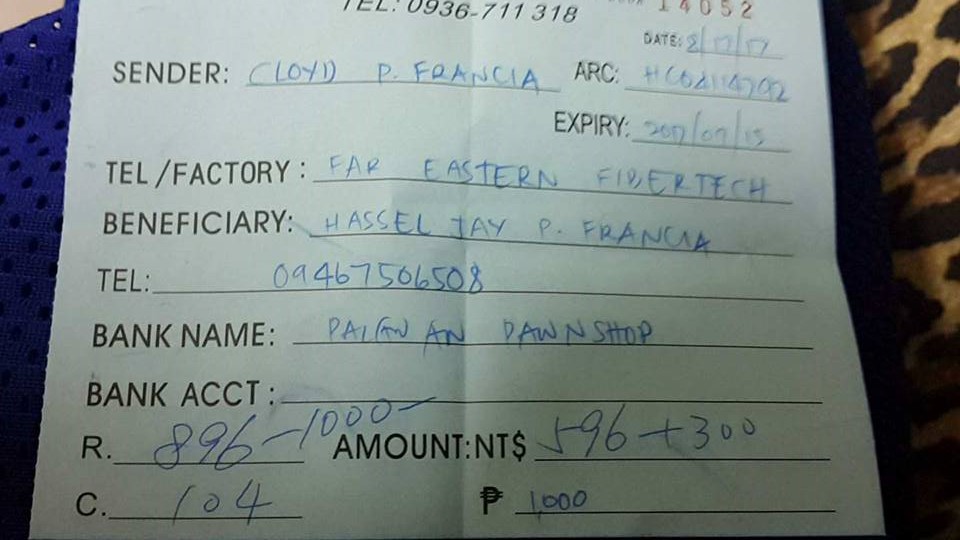 TEL: 0936-711 318
14052
DATE: 8/17/17
SENDER: CLOYD P. FRANCIA ARC:
EXPIRY: 2017/09/15
TEL/FACTORY: FAR EASTERN FIBERTECH
BENEFICIARY: HASSEL JAY P. FRANCIA
TEL: 09467506508
BANK NAME: PALAWAN PAWNSHOP
BANK ACCT:
R. 896-1000- AMOUNT:NT$ 596+300
C. 104 ₱ 1,000